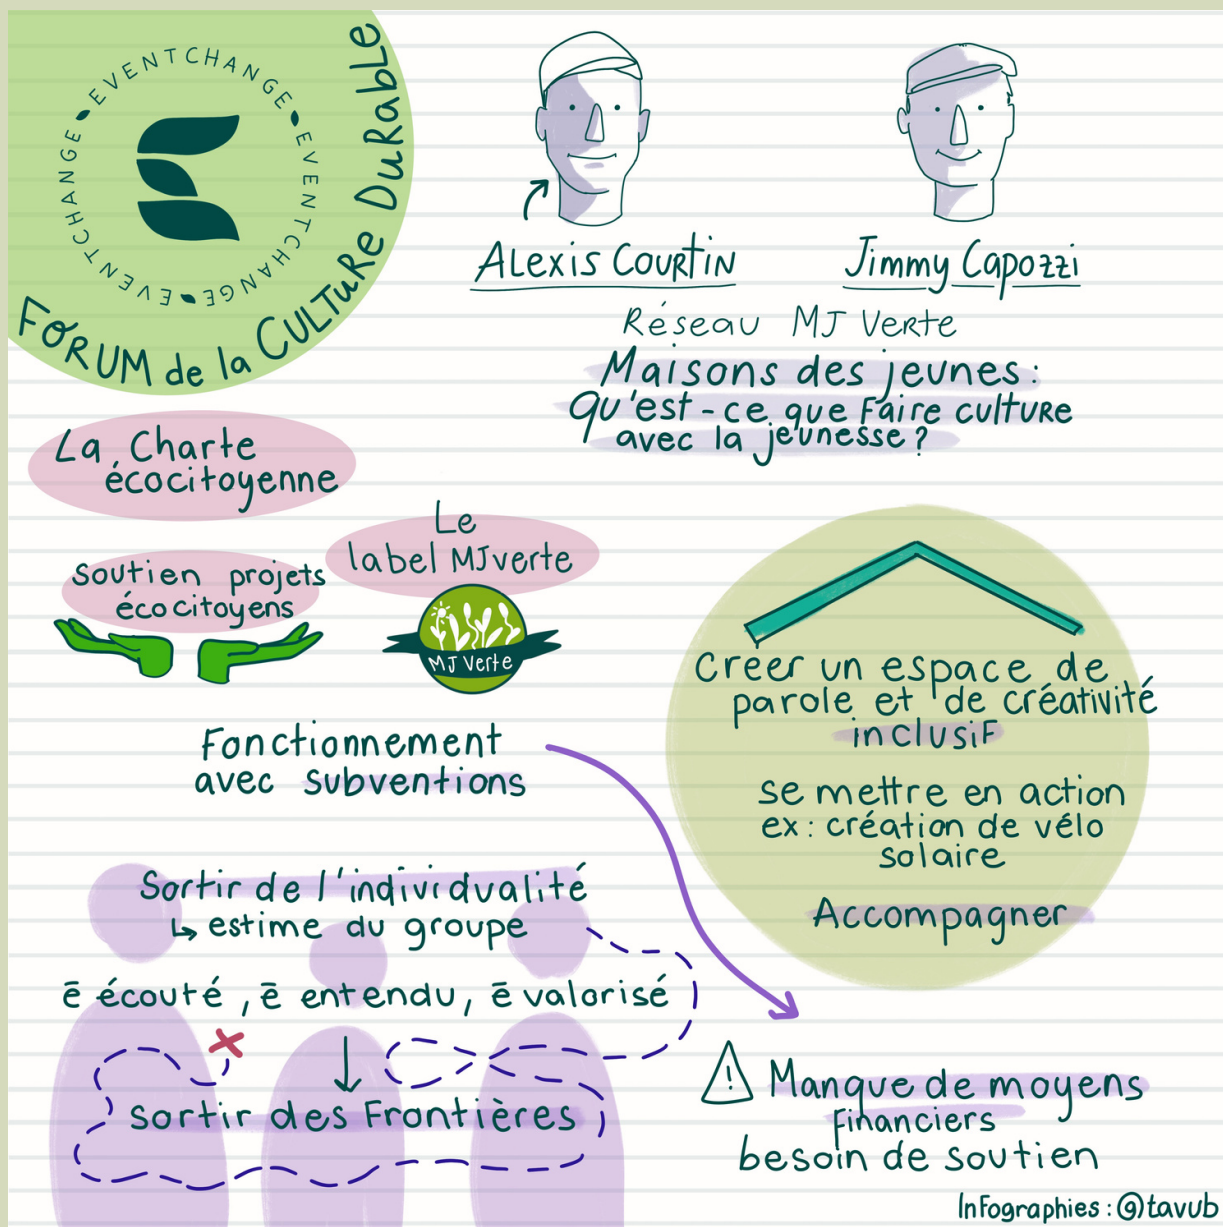 EVENTCHANGE EVENTCHANGE EVENTCHANGE EVENTCHANGE
FORUM de la CULTuRe DuRabLe
ALexis CourtiN
Jimmy Capozzi
Réseau MJ Verte
Maisons des jeunes :
Qu'est-ce que Faire culture
avec la jeunesse ?
La Charte
écocitoyenne
Le
label MJverte
Soutien projets
écocitoyens
MJ Verte
Créer un espace de
parole et de créativité
inclusiF
Se mettre en action
ex : création de vélo
solaire
Accompagner
Fonctionnement
avec subventions
Sortir de l'individualité
↳ estime du groupe
ē écouté, ē entendu, ē valorisé
↓
Sortir des Frontières
! Manque de moyens
Financiers
besoin de soutien
InFographies : @tavub